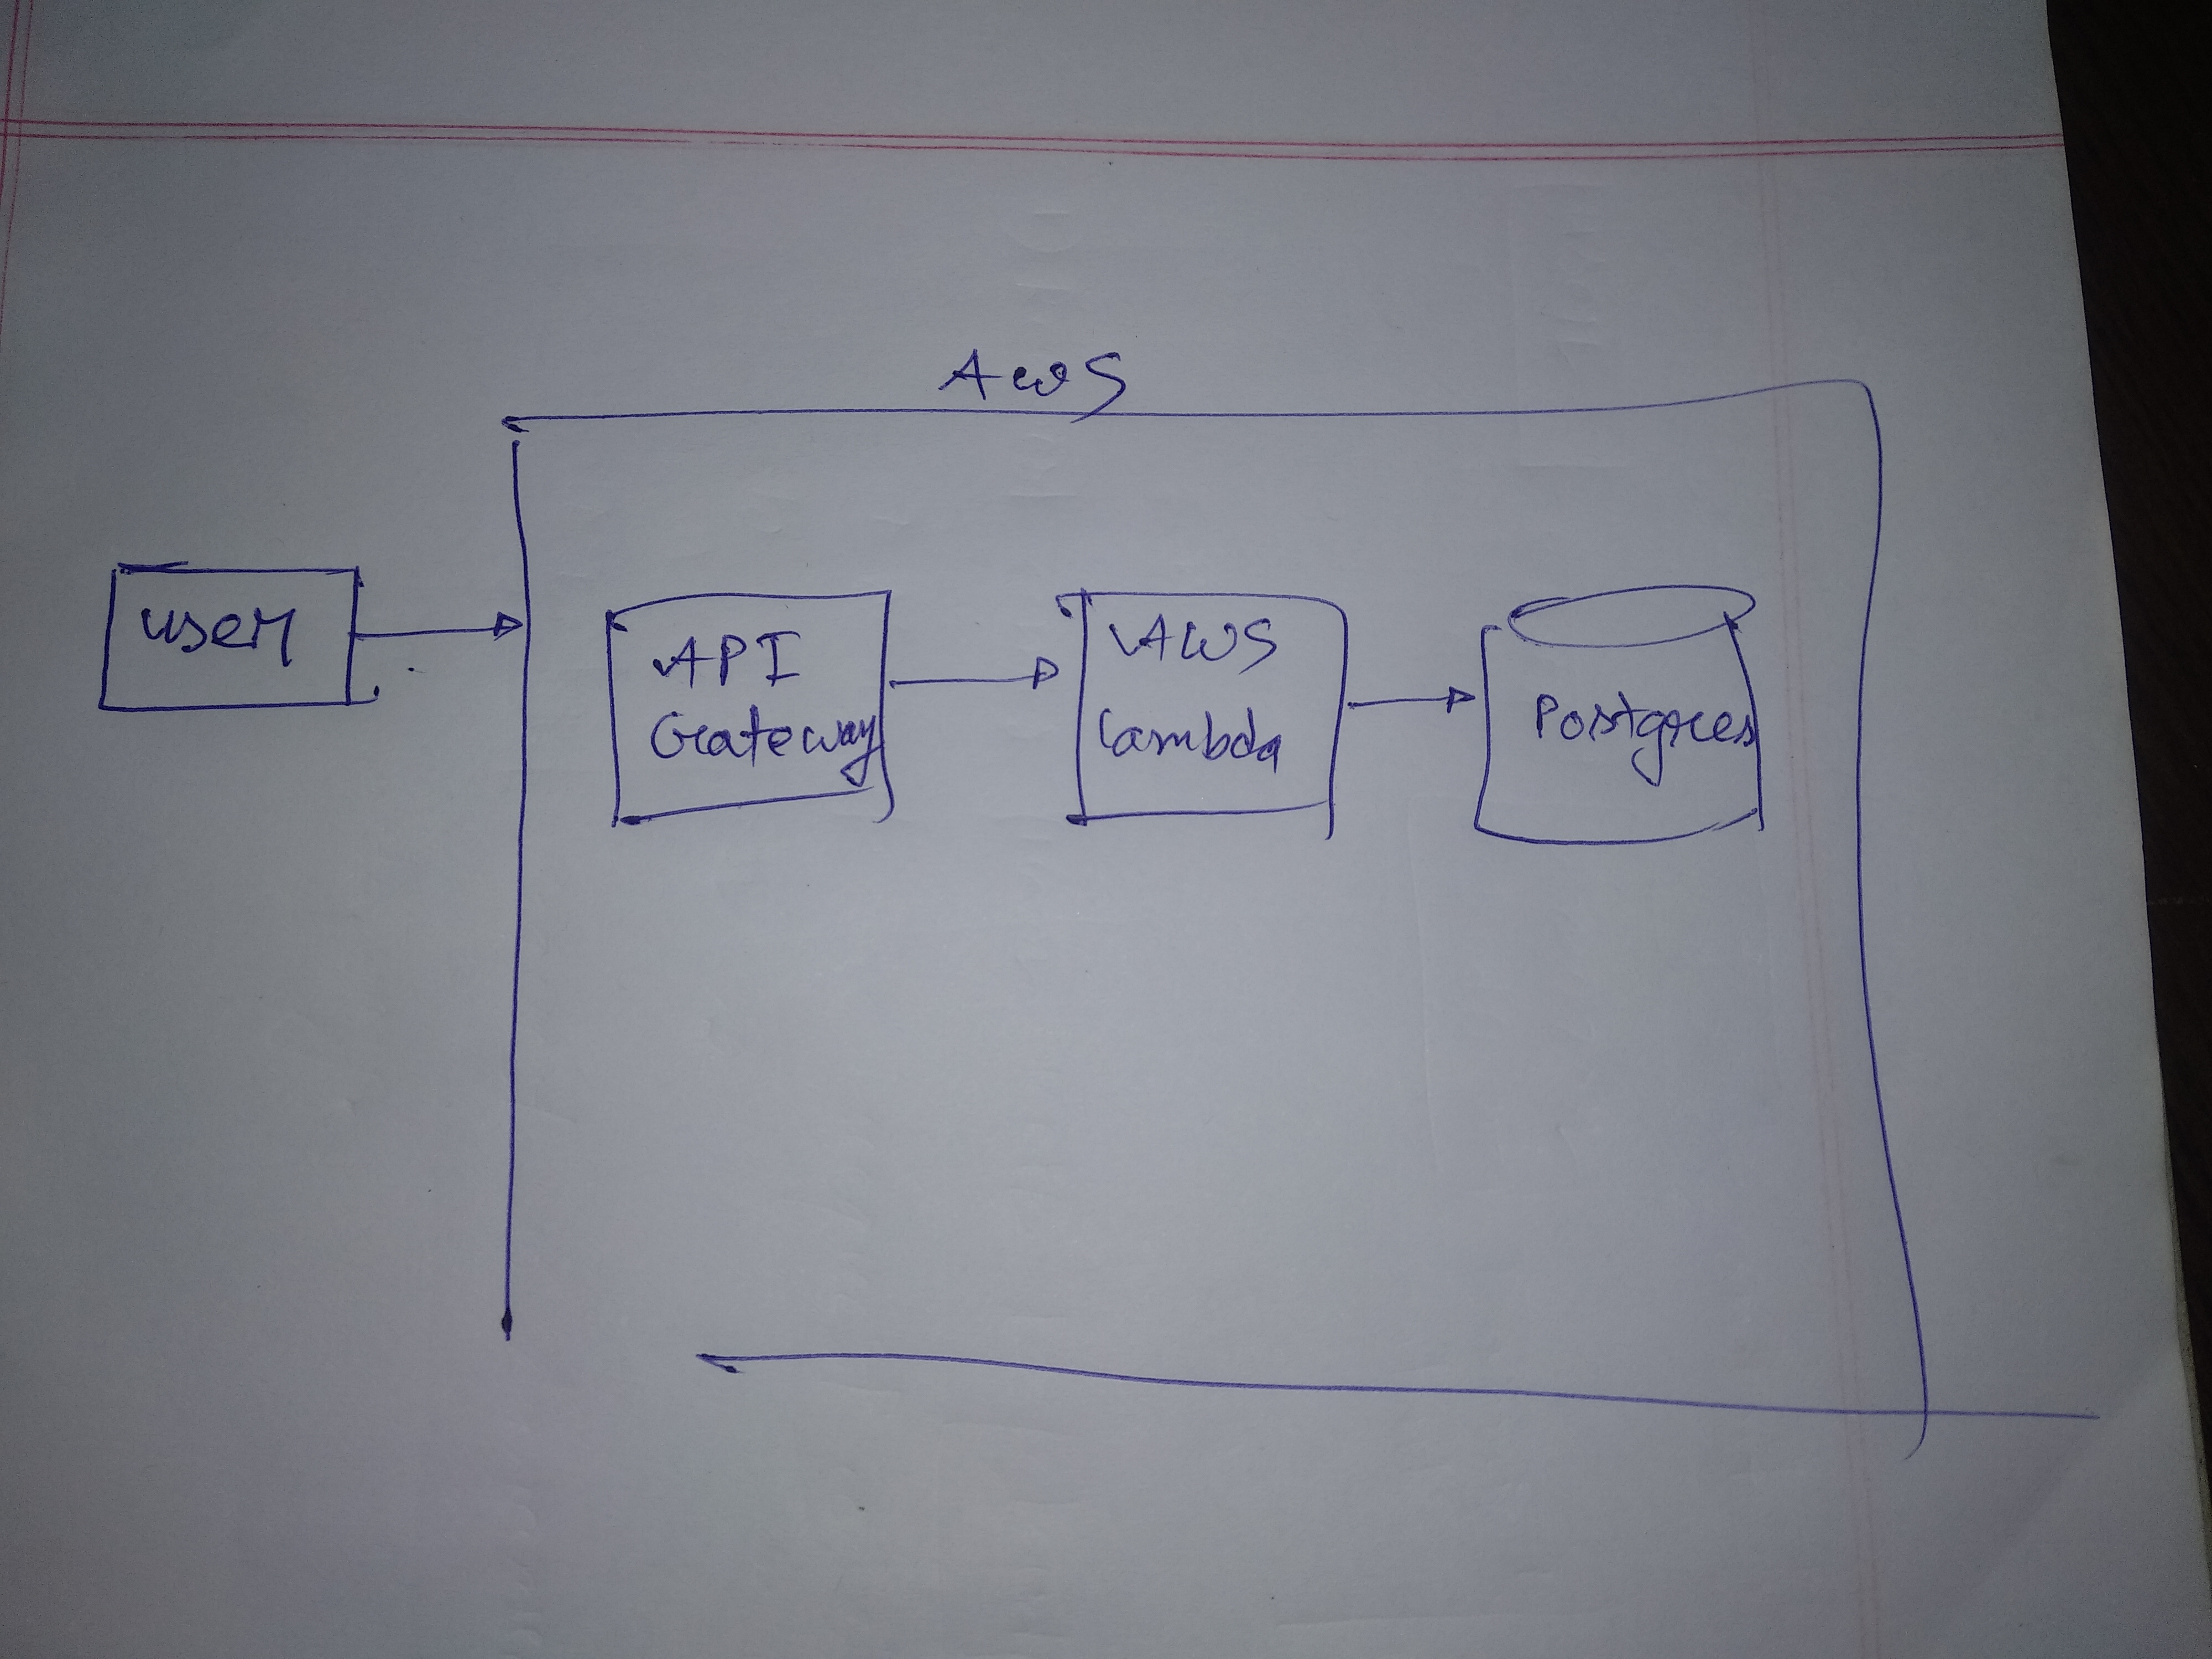 AWS
User
API
Gateway
AWS
Lambda
Postgres